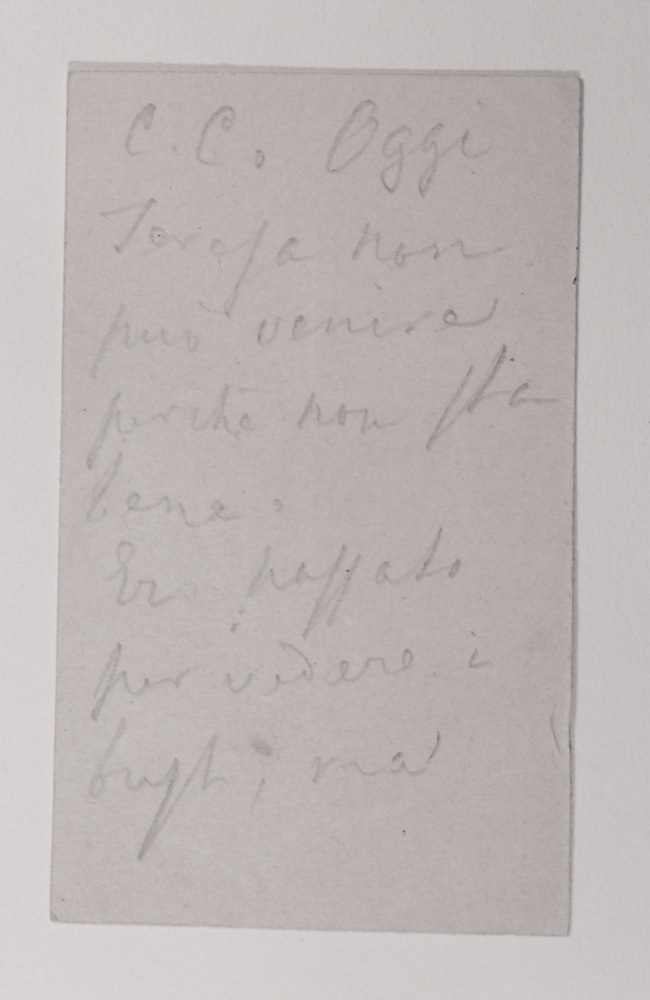 C. C. Oggi
Teresa non
può venire
perchè non sta
bene.
Er passato
per vedere i
busti, ma